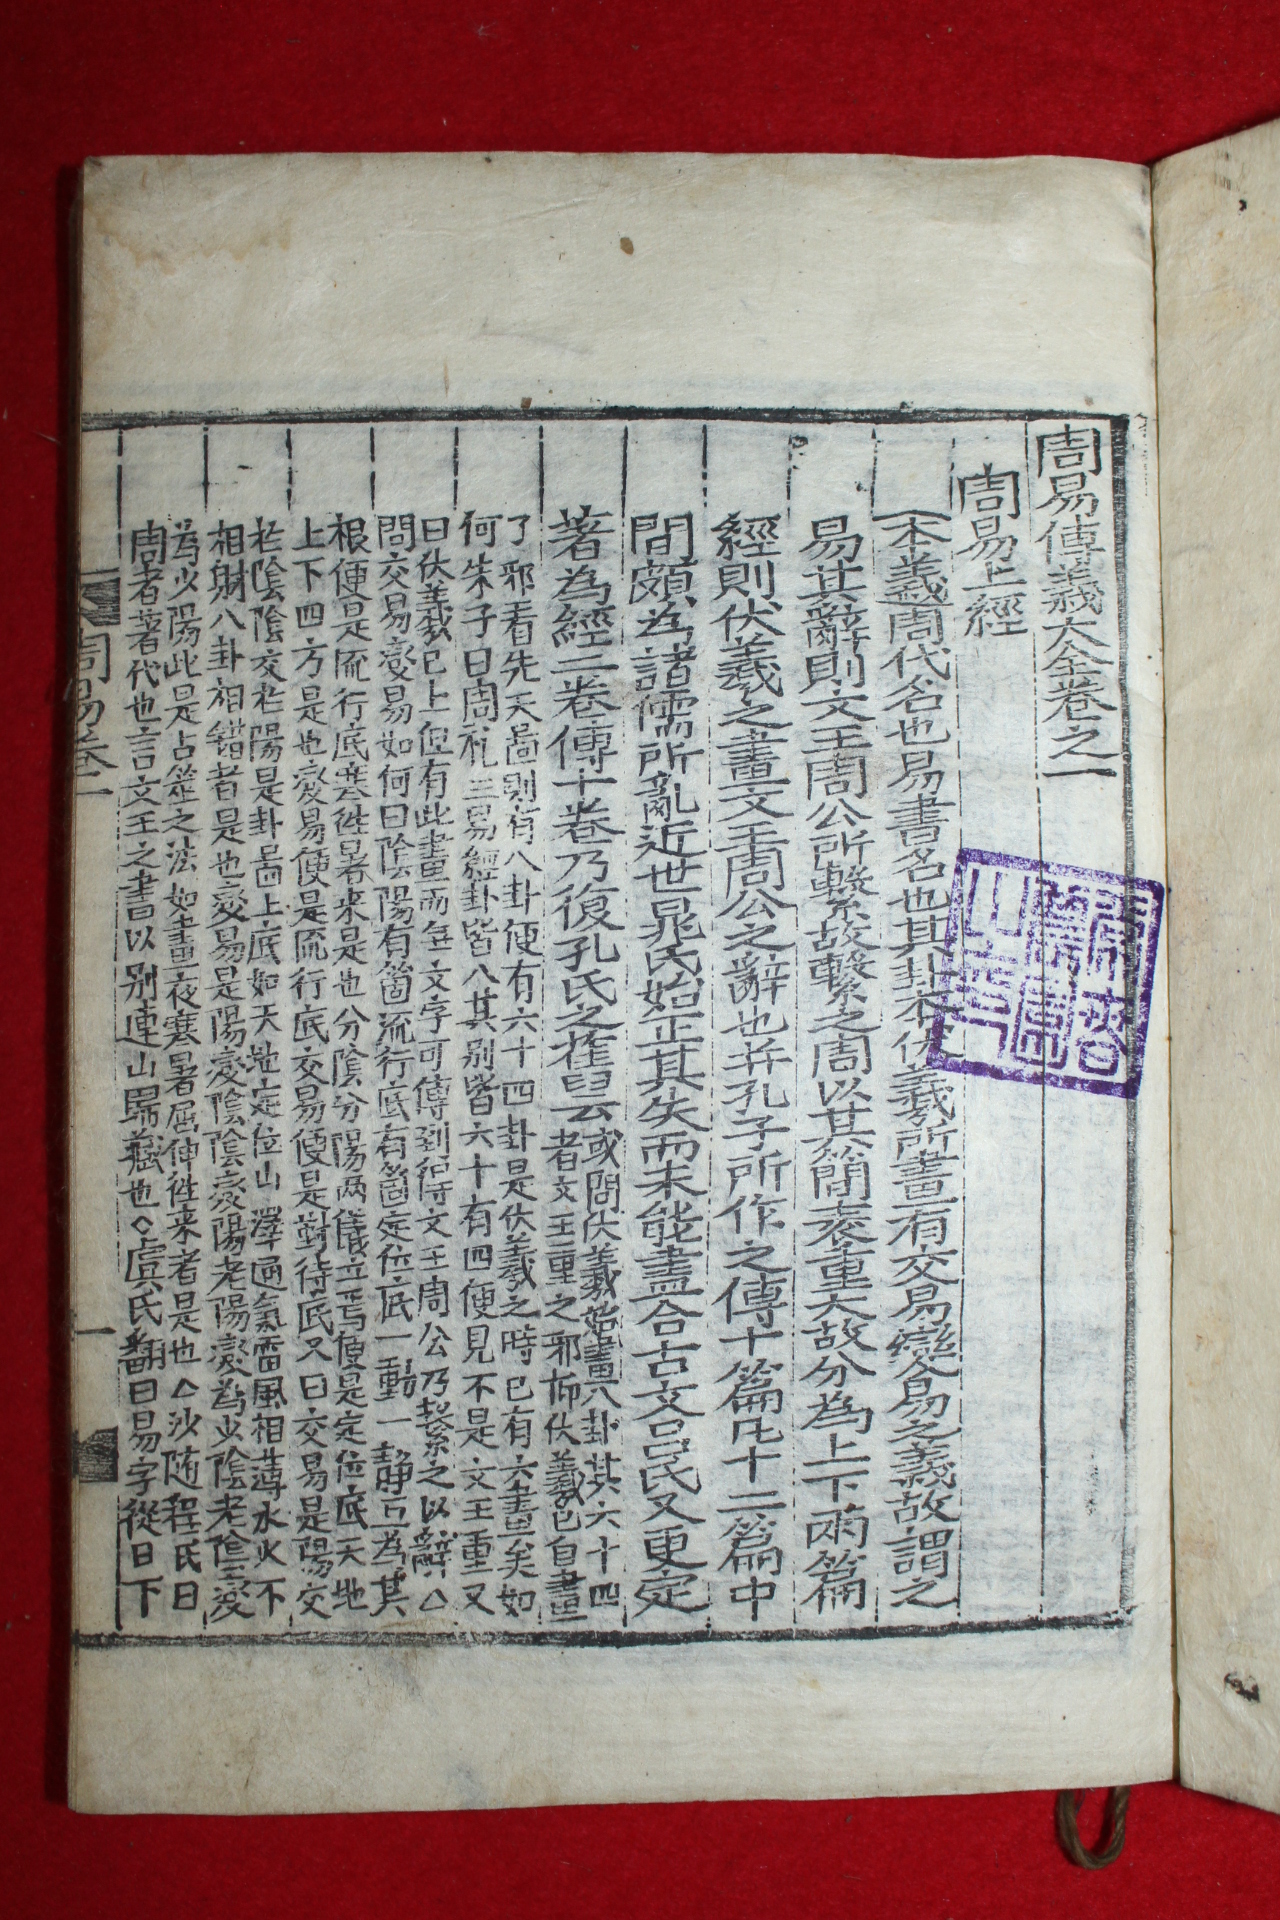 周易傳義大全卷之一
周易上經
本義周代名也易書名也其卦本伏羲所畫有交易變易之義故謂之
易其辭則文王周公所繫故繫之周以其簡袠重大故分為上下兩篇
經則伏羲之畫文王周公之辭也并孔子所作之傳十篇凡十二篇中
間頗為諸儒所亂近世晁氏始正其失而未能盡合古文呂氏又更定
著為經二卷傳十卷乃復孔氏之舊云
或問伏羲始畫八卦其六十四
者文王重之邪抑伏羲已自畫
了邪看先天啚則有八卦便有六十四卦是伏羲之時已有六畫矣如
何朱子曰周礼三易經卦皆八其別皆六十有四便見不是文王重又
曰伏羲已上但有此畫而无文字可傳到得文王周公乃繫之以辭△
問交易変易如何曰陰陽有箇流行底有箇定位底一動一静互為其
根便是流行底寒徃暑来是也分陰分陽两儀立焉便是定位底天地
上下四方是也変易便是流行底交易便是對待底又曰交易是陽交
於陰陰交於陽是卦啚上底如天地定位山澤通氣雷風相薄水火不
相射八卦相錯者是也変易是陽変陰陰変陽老陽変為少陰老陰変
為少陽此是占筮之法如晝夜寒暑屈伸徃来者是也△沙随程氏曰
周者著代也言文王之書以別連山歸藏也◇虞氏翻曰易字從日下
周易卷一
一